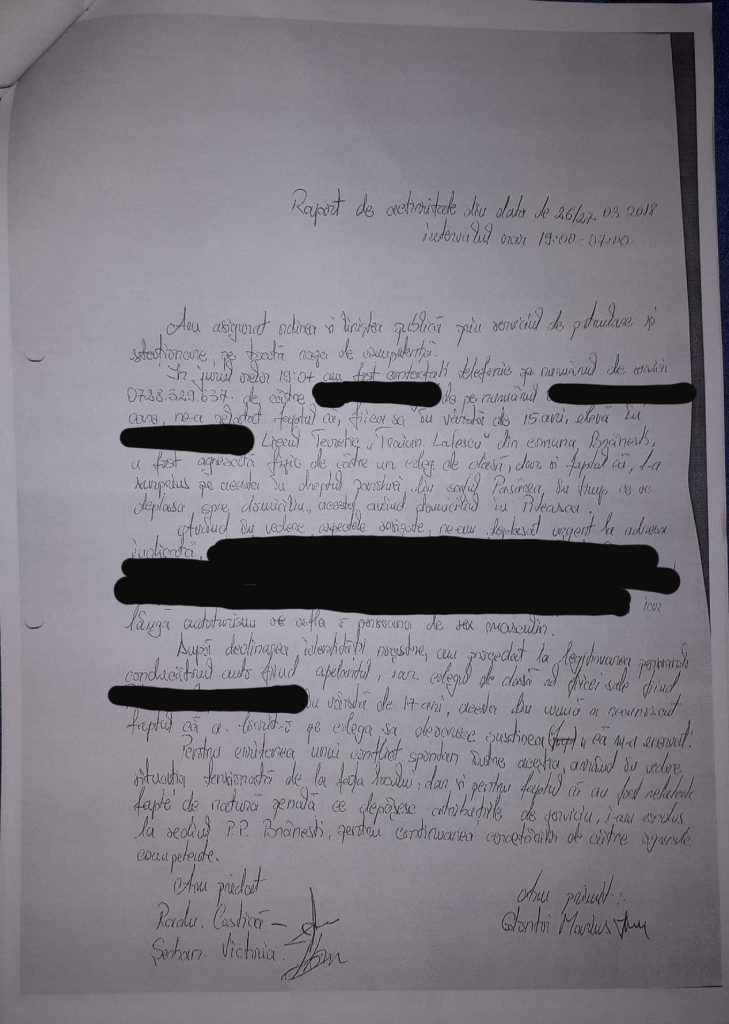 Raport de activitate din data de 26/27.03.2018
intervalul orar 19:00-07:00.
Am asigurat ordinea și liniștea publică prin serviciul de patrulare și
staționare, pe toată raza de competență.
În jurul orelor 19:07 am fost contactați telefonic pe numărul de serviciu
0738.329.637 de către de pe numărul
care, ne-a relatat faptul că, fiica sa în vârstă de 15 ani, elevă în
Liceul Teoretic „Traian Lalescu" din comuna Brănești,
a fost agresată fizic de către un coleg de clasă, dar și faptul că, l-a
surprins pe acesta în dreptul din satul Pasărea, în timp ce se
deplasa, spre domiciliu, acesta, având domiciliul în Piteasca.
Având în vedere aspectele sesizate, ne-am deplasat urgent la adresa
indicată,
iar
lângă autoturism se afla o persoană de sex masculin.
După declinarea identității noastre, am procedat la legitimarea persoanelor
conducătorul auto fiind apelantul, iar colegul de clasă al fiicei sale fiind
în vârstă de 17 ani, acesta din urmă a recunoscut
faptul că a lovit-o pe colega sa deoarece susținea că m-a enervat.
Pentru evitarea unui conflict spontan între aceștia, având în vedere
situația tensionată de la fața locului, dar și pentru faptul că au fost relatate
fapte de natură penală ce depășesc atribuțiile de serviciu, i-am condus
la sediul P.P. Brănești, pentru continuarea cercetărilor de către organele
competente.
Am predat
Am primit:
Radu Costică
Marius
Șerban Victoria